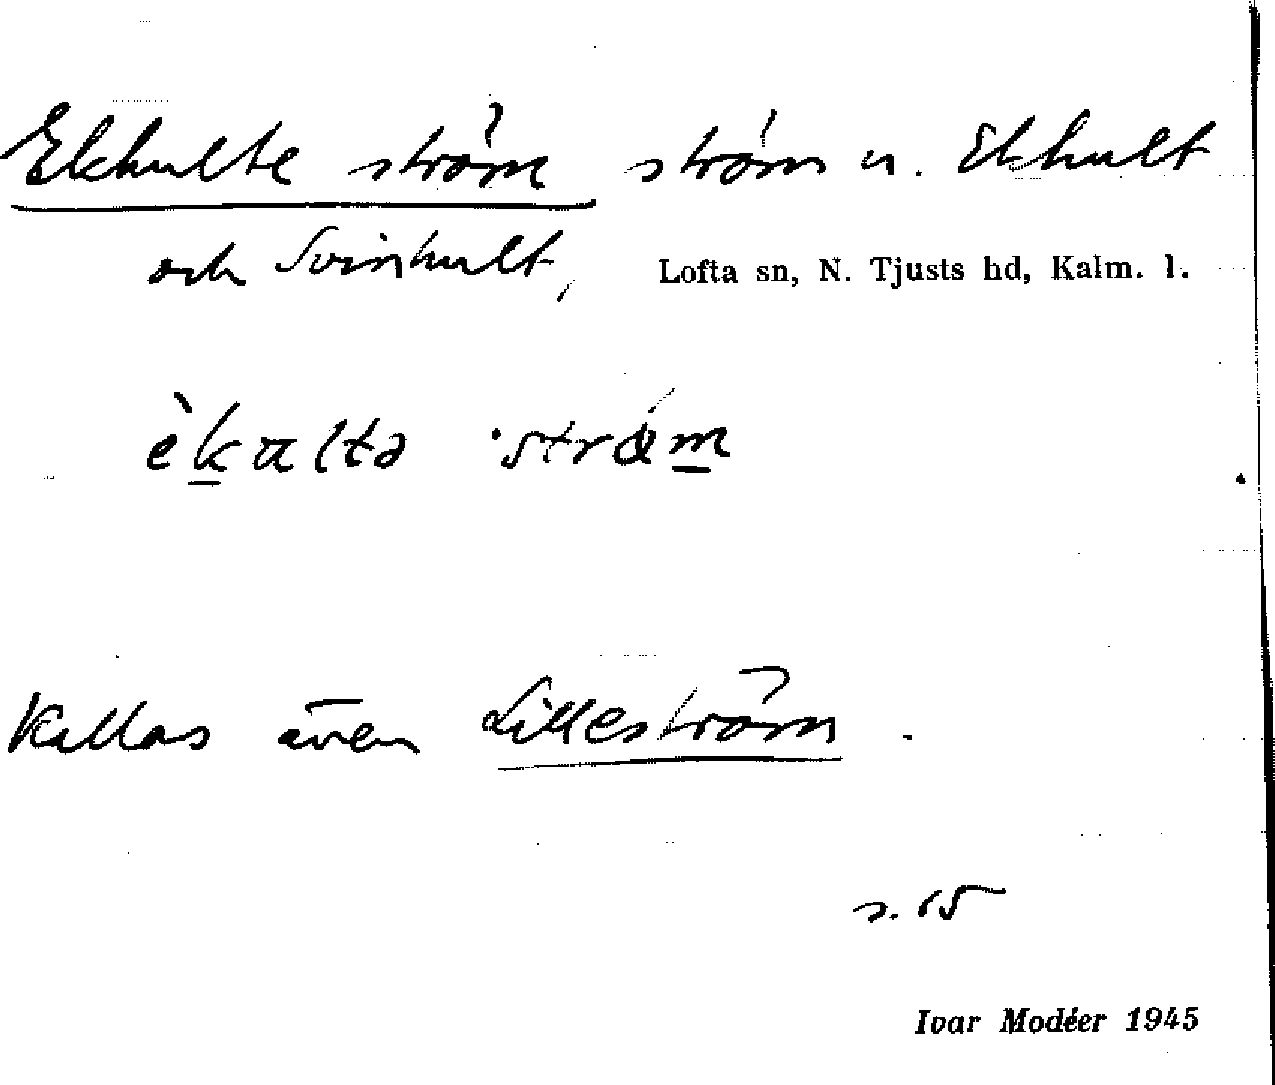 Ekhulte ström ström n. Ekhult
och Svinhult, Lofta sn, N. Tjusts hd, Kalm. l.
Kallas även Lilleström.
s. 15
Ivar Modéer 1945